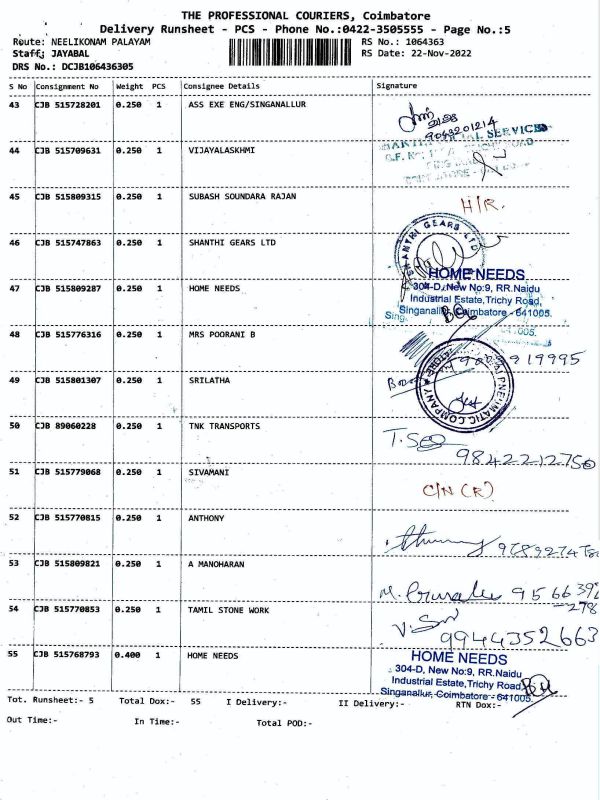 THE PROFESSIONAL COURIERS, Coimbatore
Delivery Runsheet - PCS - Phone No.:0422-3505555 - Page No.:5
Route: NEELIKONAM PALAYAM RS No.: 1064363
Staff: JAYABAL RS Date: 22-Nov-2022
DRS No.: DCJB106436305
S No Consignment No Weight PCS Consignee Details Signature
43 CJB 515728201 0.250 1 ASS EXE ENG/SINGANALLUR
9043201214
44 CJB 515709631 0.250 1 VIJAYALASKHMI
45 CJB 515809315 0.250 1 SUBASH SOUNDARA RAJAN H/R.
46 CJB 515747863 0.250 1 SHANTHI GEARS LTD SHANTHI GEARS LTD
47 CJB 515809287 0.250 1 HOME NEEDS HOME NEEDS
304-D, New No:9, RR.Naidu
Industrial Estate,Trichy Road,
Singanallur, Coimbatore - 641005.
48 CJB 515776316 0.250 1 MRS POORANI B
49 CJB 515801307 0.250 1 SRILATHA PNEUMATIC COMPANY
50 CJB 89060228 0.250 1 TNK TRANSPORTS
9842212750
51 CJB 515779068 0.250 1 SIVAMANI C/N (R)
52 CJB 515770815 0.250 1 ANTHONY
53 CJB 515809821 0.250 1 A MANOHARAN
54 CJB 515770853 0.250 1 TAMIL STONE WORK
9944352663
55 CJB 515768793 0.400 1 HOME NEEDS HOME NEEDS
304-D, New No:9, RR.Naidu
Industrial Estate,Trichy Road,
Singanallur, Coimbatore - 641005.
Tot. Runsheet:- 5 Total Dox:- 55 I Delivery:- II Delivery:- RTN Dox:-
Out Time:- In Time:- Total POD:-